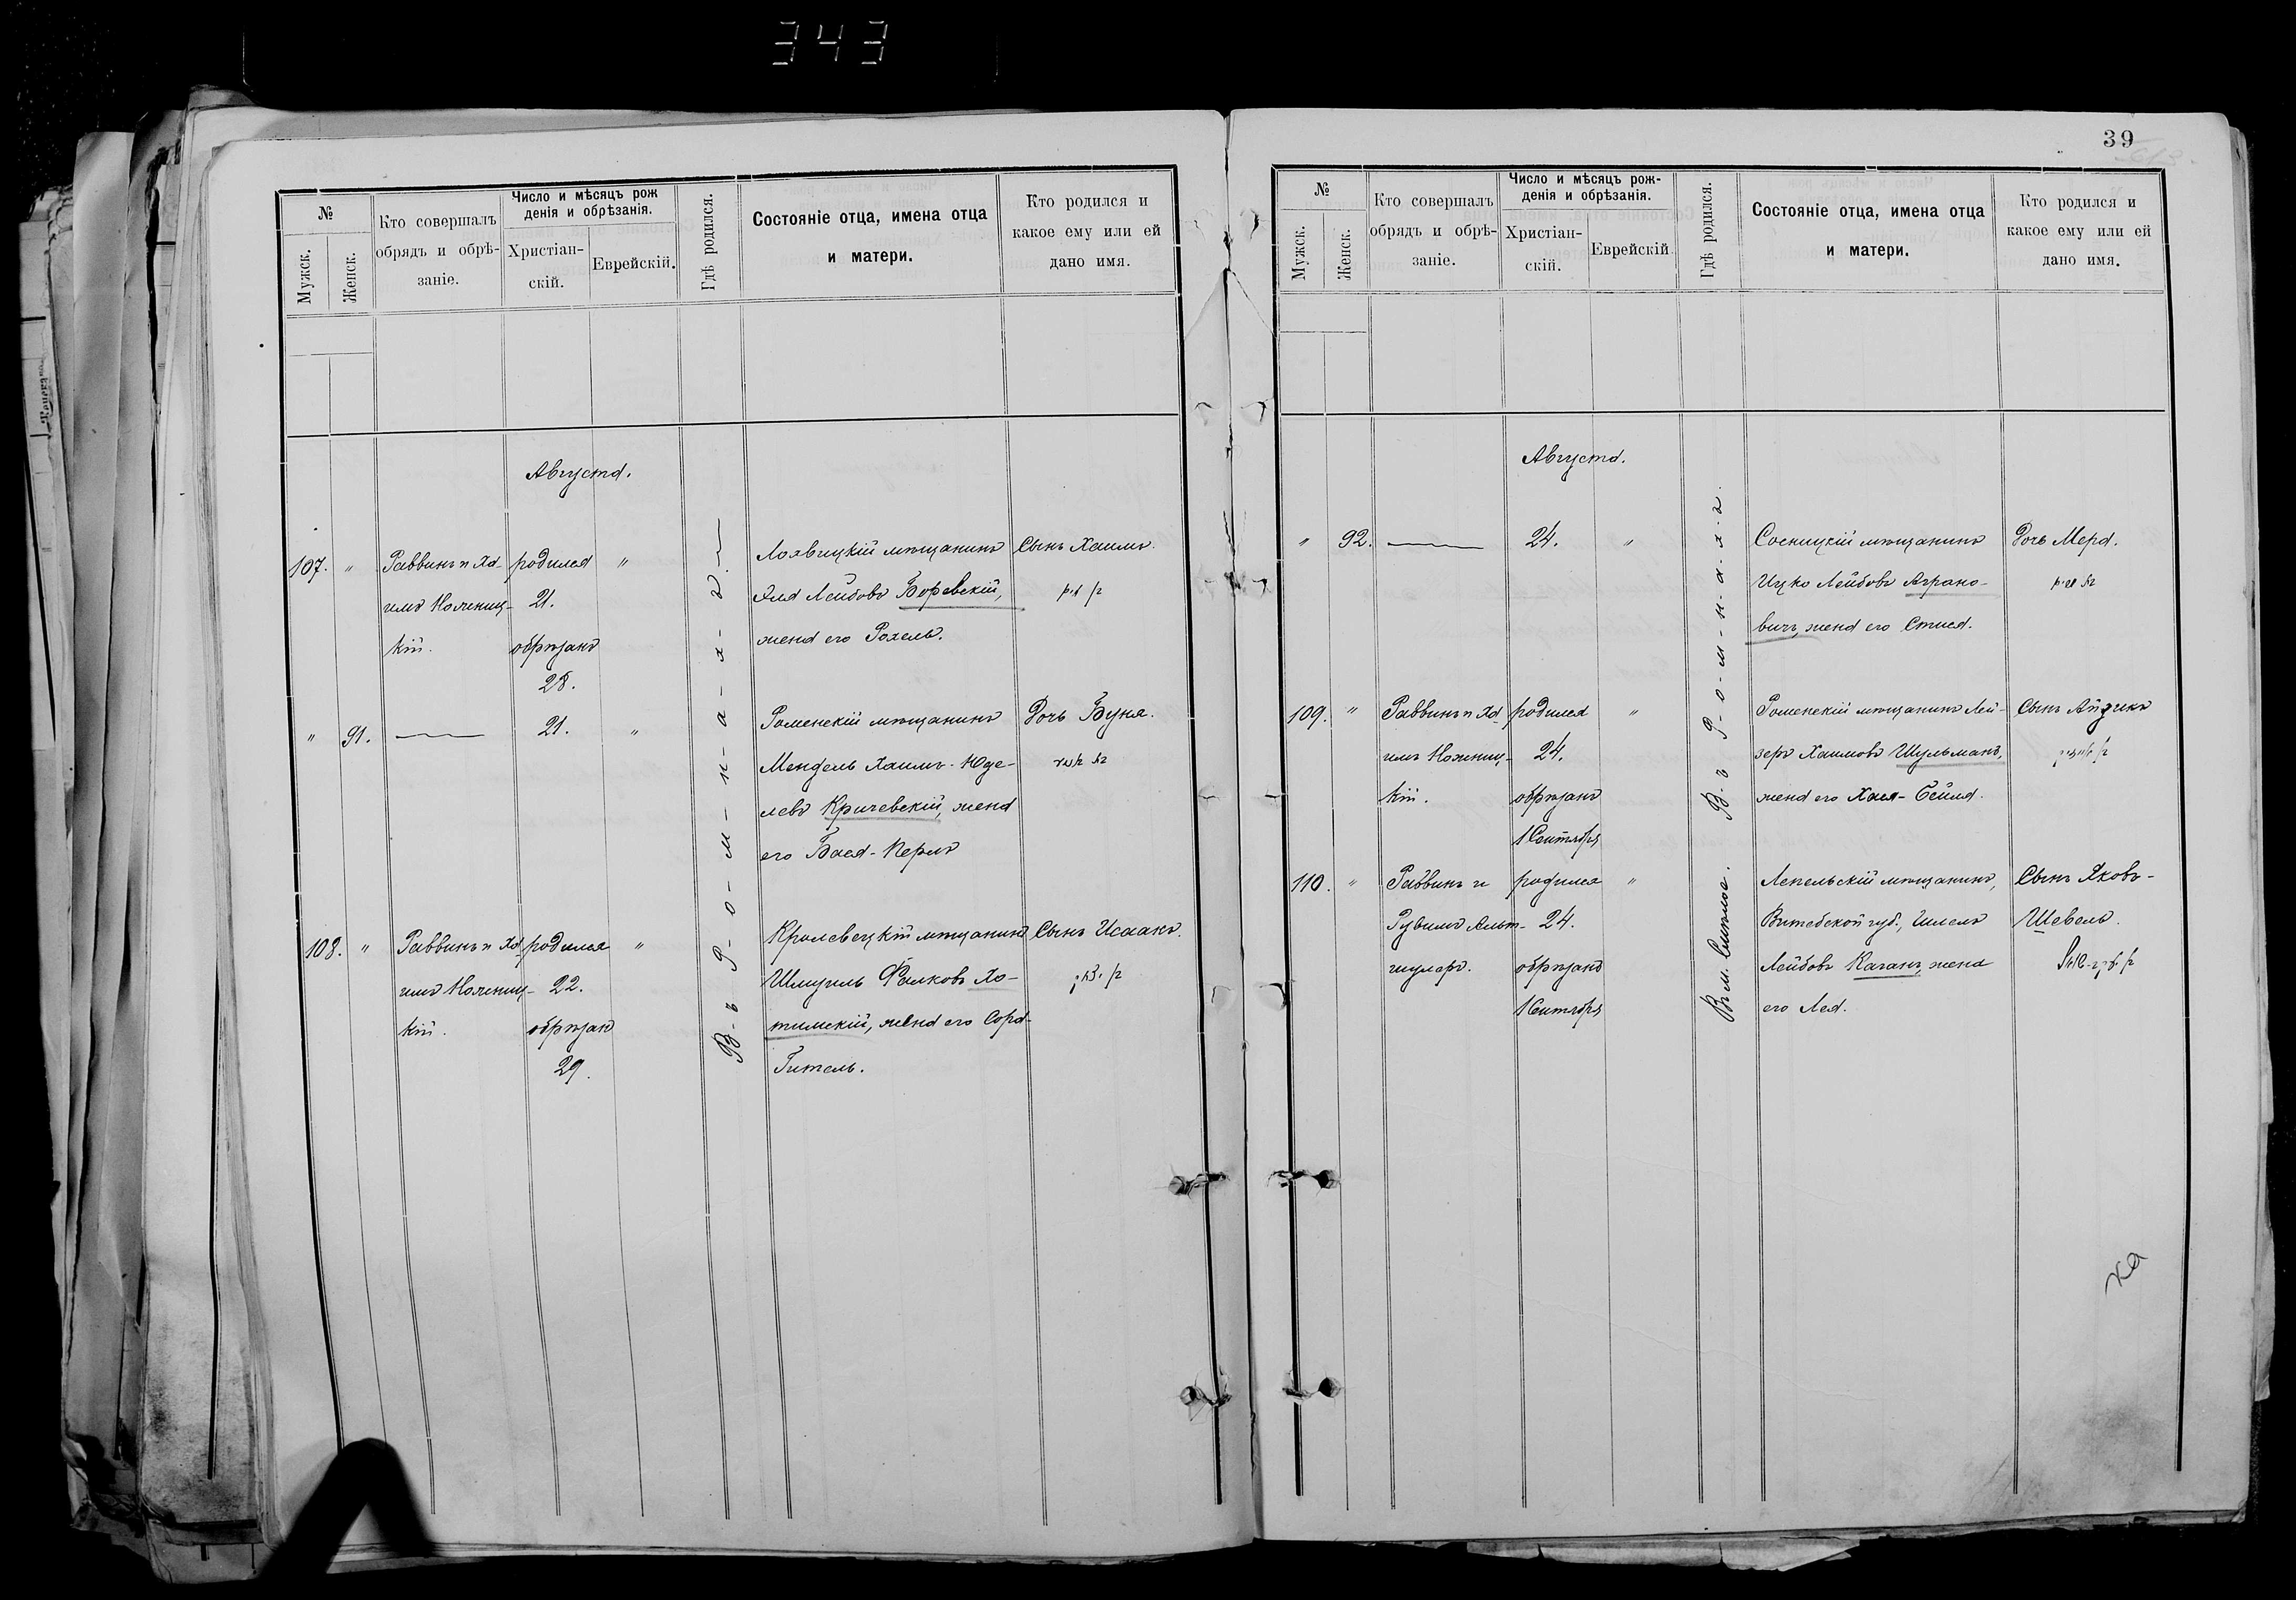 343
39
№
Мужск.
Женск.
Кто совершалъ
обрядъ и обрѣ-
заніе.
Число и мѣсяцъ рож
денія и обрѣзанія.
Христіан-
скій.
Еврейскій.
Гдѣ родился.
Состояніе отца, имена отца
и матери.
Кто родился и
какое ему или ей
дано имя.
Августа.
107. "
Раввинъ и Ха-
имъ Ножниц-
кій.
родился
21.
обрѣзанъ
28.
"
В-ъ Р-о-м-н-а-х-ъ
мѣщанинъ
Лейбовъ Боревскій,
жена его Рохель.
Сынъ Хаимъ.
" 91.
21.
"
Роменскій мѣщанинъ
Мендель Хаимъ-Юде-
левъ Кричевскій, жена
его Бася-Перлъ
Дочь Буня.
108. "
Раввинъ и Ха-
имъ Ножниц-
кій.
родился
22.
обрѣзанъ
29.
"
Кролевецкій мѣщанинъ
Шмуиль Фалковъ Хо-
тимскій, жена его Сора-
Гитель.
Сынъ Исаакъ.
№
Мужск.
Женск.
Кто совершалъ
обрядъ и обрѣ-
заніе.
Число и мѣсяцъ рож-
денія и обрѣзанія.
Христіан-
скій.
Еврейскій
Гдѣ родился.
Состояніе отца, имена отца
и матери.
Кто родился и
какое ему или ей
дано имя.
Августа.
" 92.
24.
"
В-ъ Р-о-м-н-а-х-ъ.
Сосницкій мѣщанинъ
Ицко Лейбовъ Аграно-
вичъ, жена его Стися.
Дочь Мера.
109. "
Раввинъ и Ха-
имъ Ножниц-
кій.
родился
24.
обрѣзанъ
1 Сентября
"
Роменскій мѣщанинъ Лей-
зеръ Хаимовъ Шульманъ,
жена его Хася-Бейла.
Сынъ Айзикъ
110. "
Раввинъ и
Рувимъ Альт-
шулеръ.
родился
24.
обрѣзанъ
1 Сентября
"
Въ м. Смѣлое.
Лепельскій мѣщанинъ,
Витебской губ.,
Лейбовъ Каганъ, жена
его Лея.
Сынъ Яковъ-
Шевель.